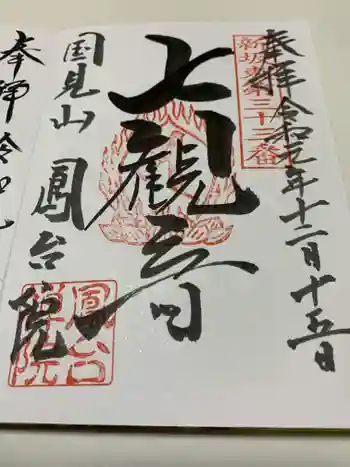 奉拝 令和元年十二月十五日
新坂東第三十三番
七観音
国見山 鳳台院
奉拝 令和